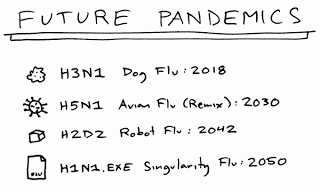 FUTURE PANDEMICS
H3N1 Dog Flu: 2018
H5N1 Avian Flu (Remix): 2030
H2D2 Robot Flu: 2042
H1N1.EXE Singularity Flu: 2050
FLU